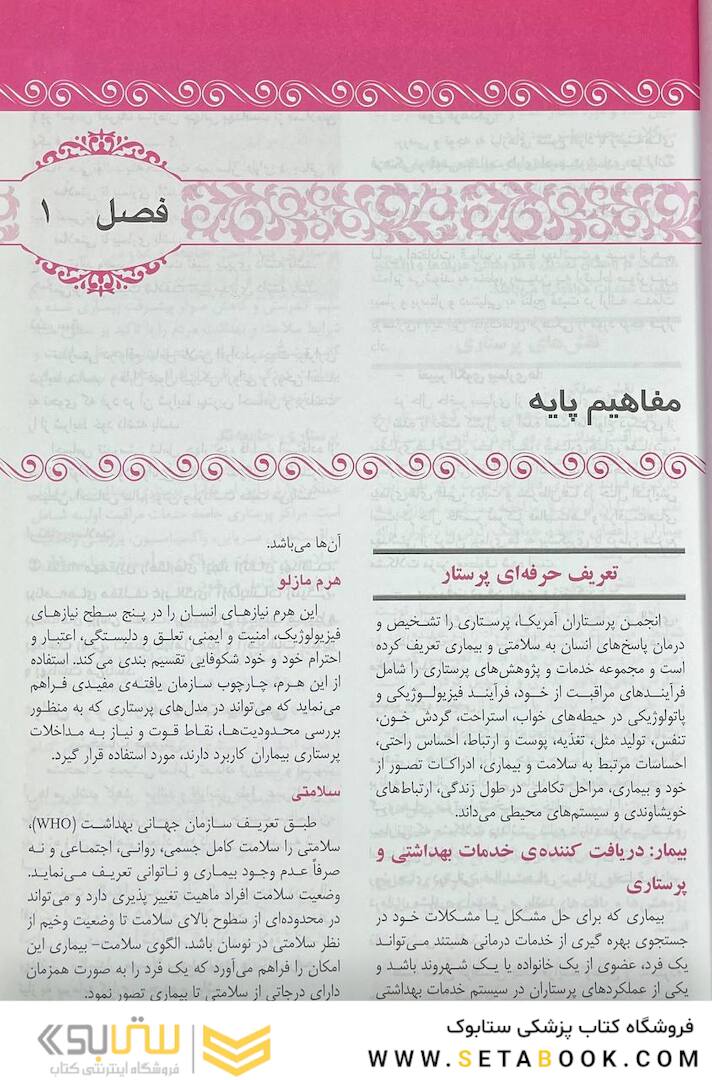 فصل ۱
مفاهیم پایه
تعریف حرفه‌ای پرستار
انجمن پرستاران آمریکا، پرستاری را تشخیص و
درمان پاسخ‌های انسان به سلامتی و بیماری تعریف کرده
است و مجموعه خدمات و پژوهش‌های پرستاری را شامل
فرآیندهای مراقبت از خود، فرآیند فیزیولوژیکی و
پاتولوژیکی در حیطه‌های خواب، استراحت، گردش خون،
تنفس، تولید مثل، تغذیه، پوست و ارتباط، احساس راحتی،
احساسات مرتبط به سلامت و بیماری، ادراکات تصور از
خود و بیماری، مراحل تکاملی در طول زندگی، ارتباط‌های
خویشاوندی و سیستم‌های محیطی می‌داند.
بیمار: دریافت کننده‌ی خدمات بهداشتی و
پرستاری
بیماری که برای حل مشکل یا مشکلات خود در
جستجوی بهره گیری از خدمات درمانی هستند می‌تواند
یک فرد، عضوی از یک خانواده یا یک شهروند باشد و
یکی از عملکردهای پرستاران در سیستم خدمات بهداشتی
آن‌ها می‌باشد.
هرم مازلو
این هرم نیازهای انسان را در پنج سطح نیازهای
فیزیولوژیک، امنیت و ایمنی، تعلق و دلبستگی، اعتبار و
احترام خود و خود شکوفایی تقسیم بندی می‌کند. استفاده
از این هرم، چارچوب سازمان یافته‌ی مفیدی فراهم
می‌نماید که می‌تواند در مدل‌های پرستاری که به منظور
بررسی محدودیت‌ها، نقاط قوت و نیاز به مداخلات
پرستاری بیماران کاربرد دارند، مورد استفاده قرار گیرد.
سلامتی
طبق تعریف سازمان جهانی بهداشت (WHO)،
سلامتی را سلامت کامل جسمی، روانی، اجتماعی و نه
صرفاً عدم وجود بیماری و ناتوانی تعریف می‌نماید.
وضعیت سلامت افراد ماهیت تغییر پذیری دارد و می‌تواند
در محدوده‌ای از سطوح بالای سلامت تا وضعیت وخیم از
نظر سلامتی در نوسان باشد. الگوی سلامت- بیماری این
امکان را فراهم می‌آورد که یک فرد را به صورت همزمان
دارای درجاتی از سلامتی تا بیماری تصور نمود.
فروشگاه کتاب پزشکی ستابوک
WWW.SETABOOK.COM
ستابوک
فروشگاه اینترنتی کتاب